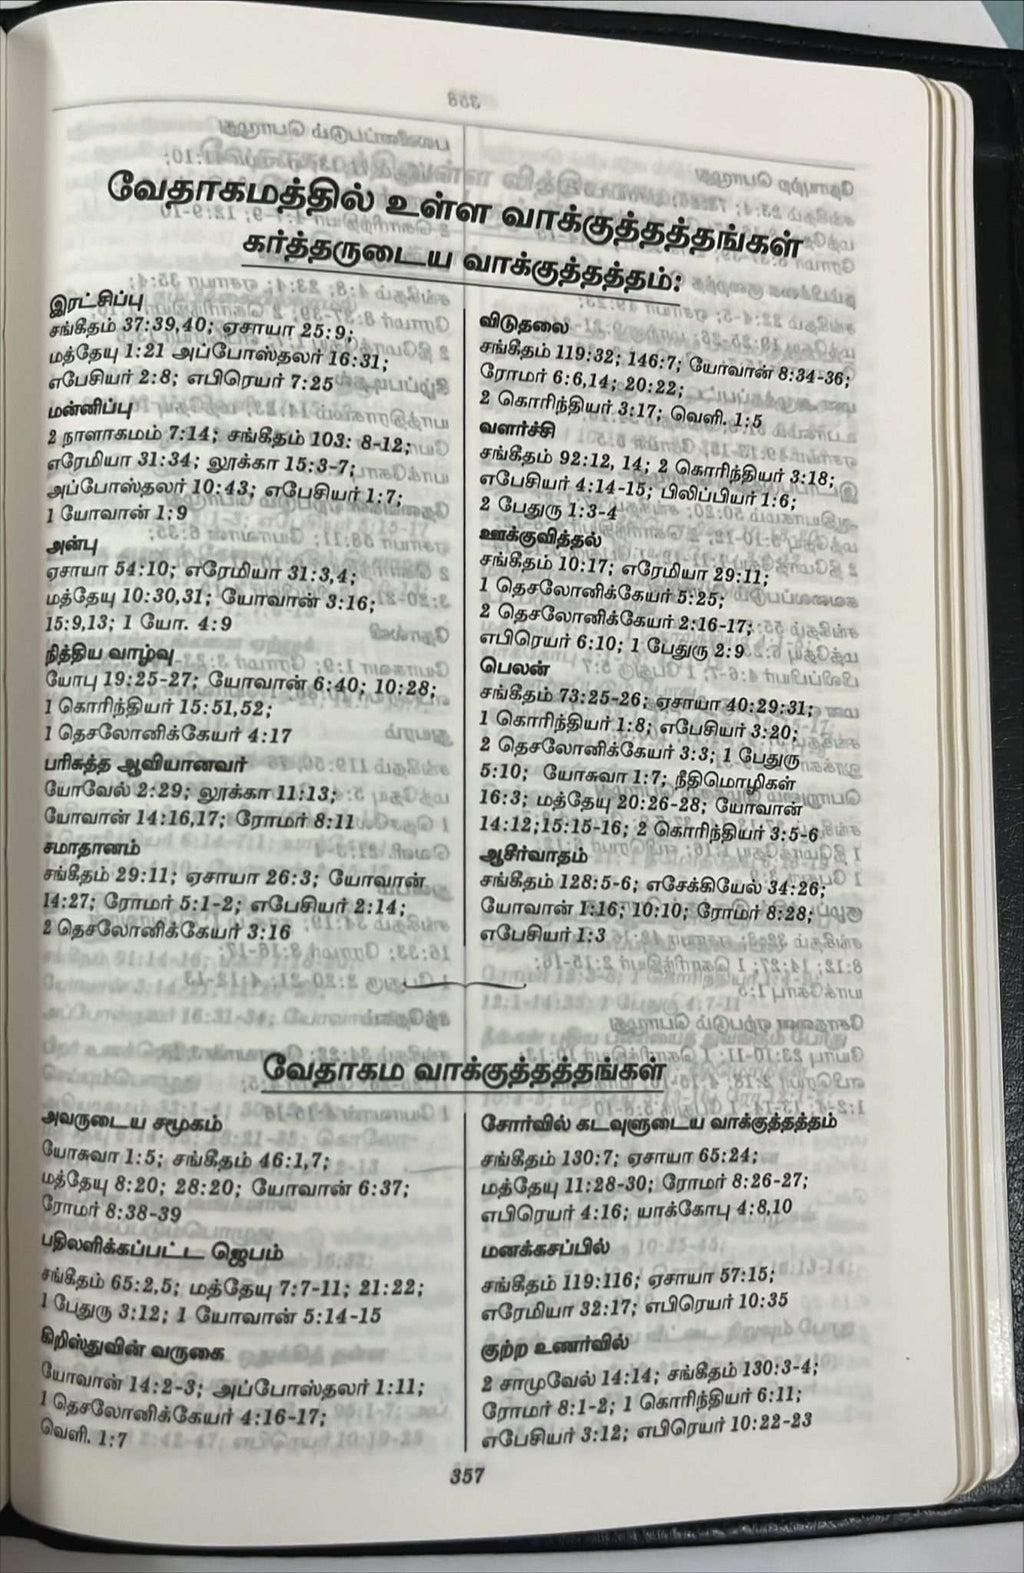 வேதாகமத்தில் உள்ள வாக்குத்தத்தங்கள்
கர்த்தருடைய வாக்குத்தத்தம்:
இரட்சிப்பு
சங்கீதம் 37:39,40; ஏசாயா 25:9;
மத்தேயு 1:21 அப்போஸ்தலர் 16:31;
எபேசியர் 2:8; எபிரெயர் 7:25
மன்னிப்பு
2 நாளாகமம் 7:14; சங்கீதம் 103: 8-12;
எரேமியா 31:34; லூக்கா 15:3-7;
அப்போஸ்தலர் 10:43; எபேசியர் 1:7;
1 யோவான் 1;9
அன்பு
ஏசாயா 54:10; எரேமியா 31:3,4;
மத்தேயு 10:30,31; யோவான் 3:16;
15:9,13; 1 யோ. 4:9
நித்திய வாழ்வு
யோபு 19:25-27; யோவான் 6:40; 10:28;
1 கொரிந்தியர் 15:51,52;
1 தெசலோனிக்கேயர் 4:17
பரிசுத்த ஆவியானவர்
யோவேல் 2:29; லூக்கா 11:13;
யோவான் 14:16,17; ரோமர் 8:11
சமாதானம்
சங்கீதம் 29:11; ஏசாயா 26:3; யோவான்
14:27; ரோமர் 5:1-2; எபேசியர் 2:14;
2 தெசலோனிக்கேயர் 3:16
விடுதலை
சங்கீதம் 119:32; 146:7; யோவான் 8:34-36;
ரோமர் 6:6,14; 20:22;
2 கொரிந்தியர் 3:17; வெளி. 1:5
வளர்ச்சி
சங்கீதம் 92:12, 14; 2 கொரிந்தியர் 3:18;
எபேசியர் 4:14-15; பிலிப்பியர் 1:6;
2 பேதுரு 1:3-4
ஊக்குவித்தல்
சங்கீதம் 10:17; எரேமியா 29:11;
1 தெசலோனிக்கேயர் 5:25;
2 தெசலோனிக்கேயர் 2:16-17;
எபிரெயர் 6:10; 1 பேதுரு 2:9
பெலன்
சங்கீதம் 73:25-26; ஏசாயா 40:29:31;
1 கொரிந்தியர் 1:8; எபேசியர் 3:20;
2 தெசலோனிக்கேயர் 3:3; 1 பேதுரு
5:10; யோசுவா 1:7; நீதிமொழிகள்
16:3; மத்தேயு 20:26-28; யோவான்
14:12;15:15-16; 2 கொரிந்தியர் 3:5-6
ஆசீர்வாதம்
சங்கீதம் 128:5-6; எசேக்கியேல் 34:26;
யோவான் 1:16; 10:10; ரோமர் 8:28;
எபேசியர் 1:3
வேதாகம வாக்குத்தத்தங்கள்
அவருடைய சமூகம்
யோசுவா 1:5; சங்கீதம் 46:1,7;
மத்தேயு 8:20; 28:20; யோவான் 6:37;
ரோமர் 8:38-39
பதிலளிக்கப்பட்ட ஜெபம்
சங்கீதம் 65:2,5; மத்தேயு 7:7-11; 21:22;
1 பேதுரு 3:12; 1 யோவான் 5:14-15
கிறிஸ்துவின் வருகை
யோவான் 14:2-3; அப்போஸ்தலர் 1:11;
1 தெசலோனிக்கேயர் 4:16-17;
வெளி. 1:7
சோர்வில் கடவுளுடைய வாக்குத்தத்தம்
சங்கீதம் 130:7; ஏசாயா 65:24;
மத்தேயு 11:28-30; ரோமர் 8:26-27;
எபிரெயர் 4:16; யாக்கோபு 4:8,10
மனக்கசப்பில்
சங்கீதம் 119:116; ஏசாயா 57:15;
எரேமியா 32:17; எபிரெயர் 10:35
குற்ற உணர்வில்
2 சாமுவேல் 14:14; சங்கீதம் 130:3-4;
ரோமர் 8:1-2; 1 கொரிந்தியர் 6:11;
எபேசியர் 3:12; எபிரெயர் 10:22-23
357